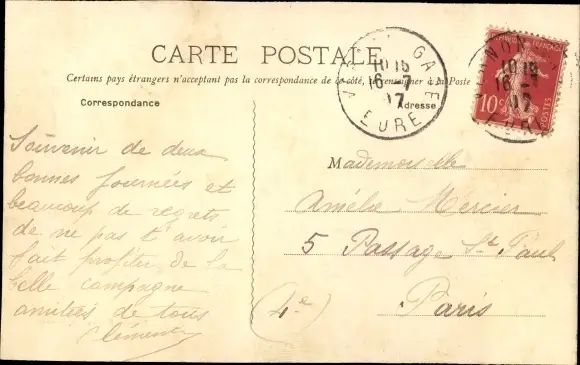 CARTE POSTALE
Certains pays étrangers n'acceptant pas la correspondance de ce côté, se renseigner à la Poste
Correspondance
Adresse
Souvenir de deux
bonnes journées et
beaucoup de regrets
de ne pas t'avoir
fait profiter de la
belle campagne
amitiés de tous
Clément
Mademoiselle
Amélie Mercier
5 Passage St Paul
Paris
(4e)
GARE
10 15
16 -7
07
EURE
10 15
16 -
07
10c
POSTES